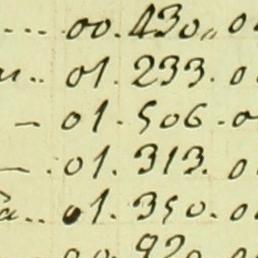 ... 00.430,, 0
.. 01.233. 0
– 01.506.0
–. 01.313. 0
a.. 01.350. 0
00.920. 0